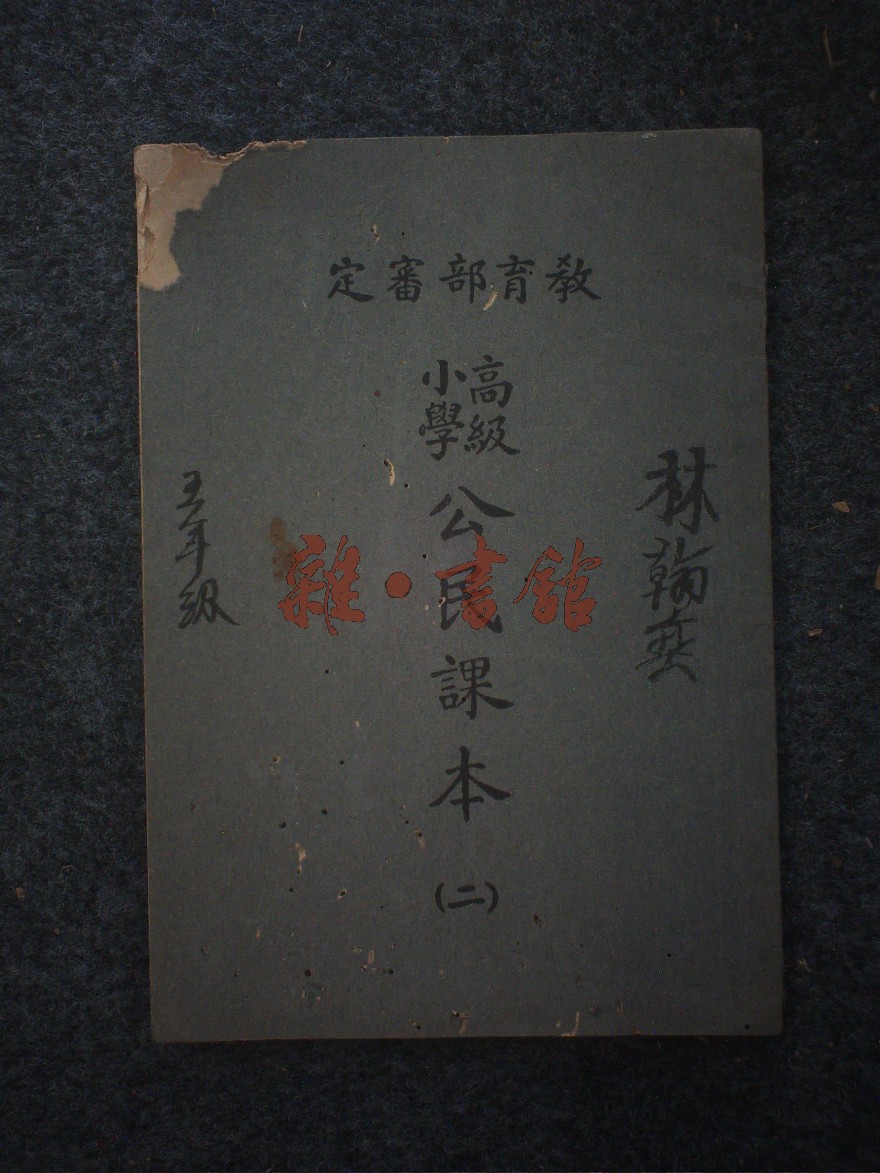 教育部審定
高級
小學
公民課本
(二)
林翰
五年級
雜·書館